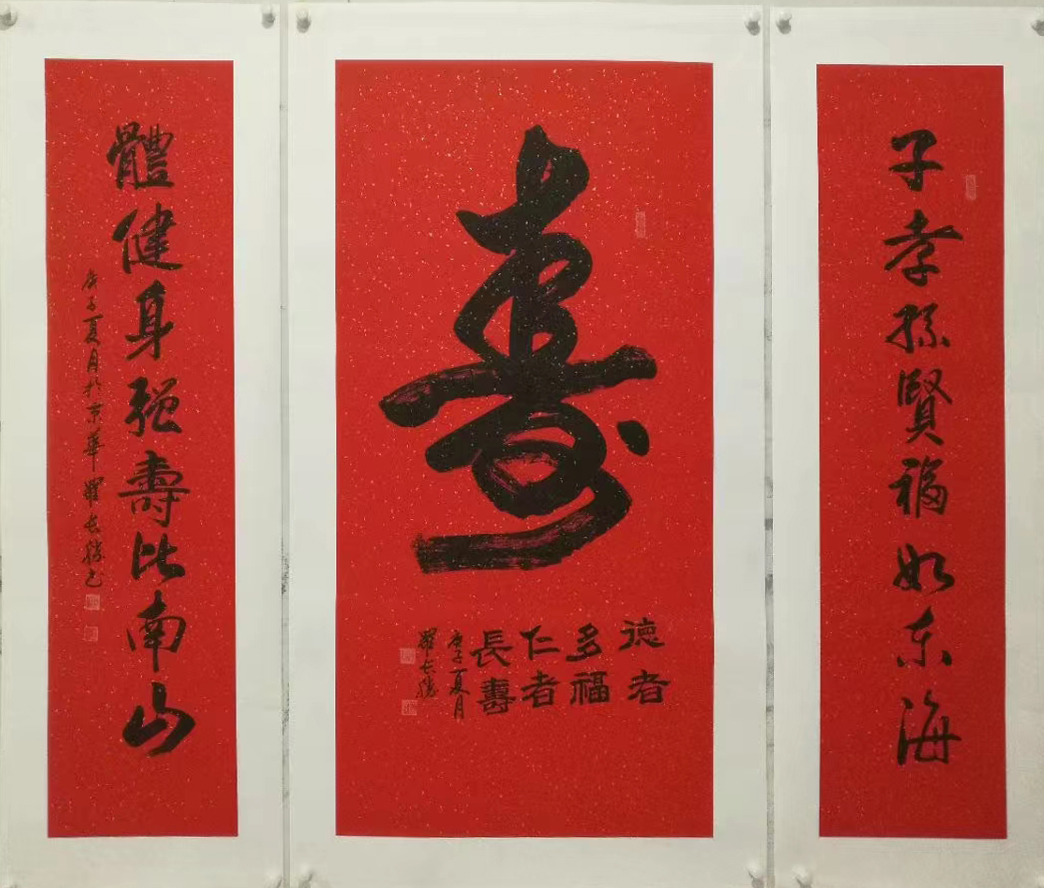 子孝孫賢福如东海
寿
德者
多福
仁者
長壽
庚子夏月
羅长勝
體健身强壽比南山
庚子夏月於京華羅长勝书